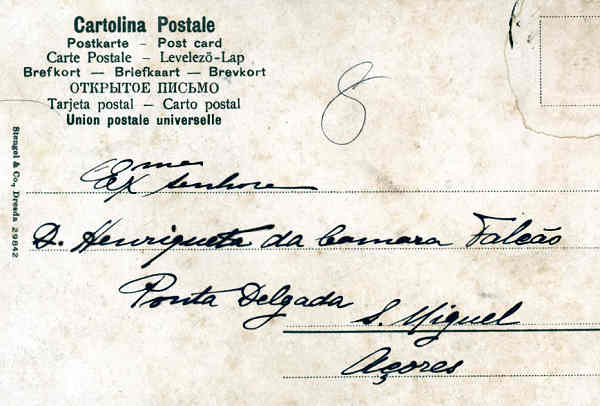 Cartolina Postale
Postkarte – Post card
Carte Postale – Levelező-Lap
Brefkort — Briefkaart — Brevkort
ОТКРЫТОЕ ПИСЬМО
Tarjeta postal — Carto postal
Union postale universelle
8
Stengel & Co., Dresda 29842
Exme senhora
D. Henriqueta da Camara Falcão
Ponta Delgada
S. Miguel
Açores